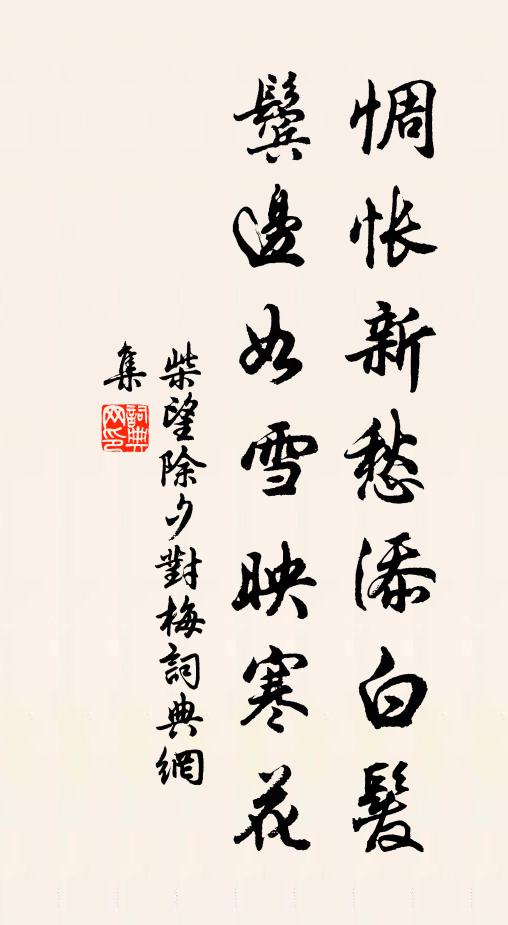 惆悵新愁添白髮
鬓邊如雪映寒花
柴望除夕對梅詞典網
集
詞典
网印